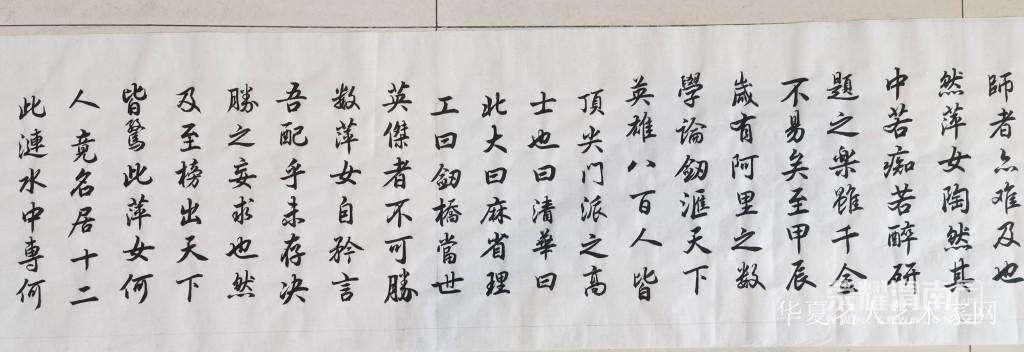 師者亦难及也
然萍女陶然其
中若痴若醉研
題之樂雖千金
不易矣至甲辰
嵗有阿里之数
學論劒滙天下
英雄八百人皆
頂尖门派之高
士也曰清華曰
北大曰麻省理
工曰劒橋當世
英傑者不可勝
数萍女自矜言
吾配乎未存决
勝之妄求也然
及至榜出天下
皆驚此萍女何
人竟名居十二
此漣水中專何
荣耀渭南网
华夏名人艺术家网